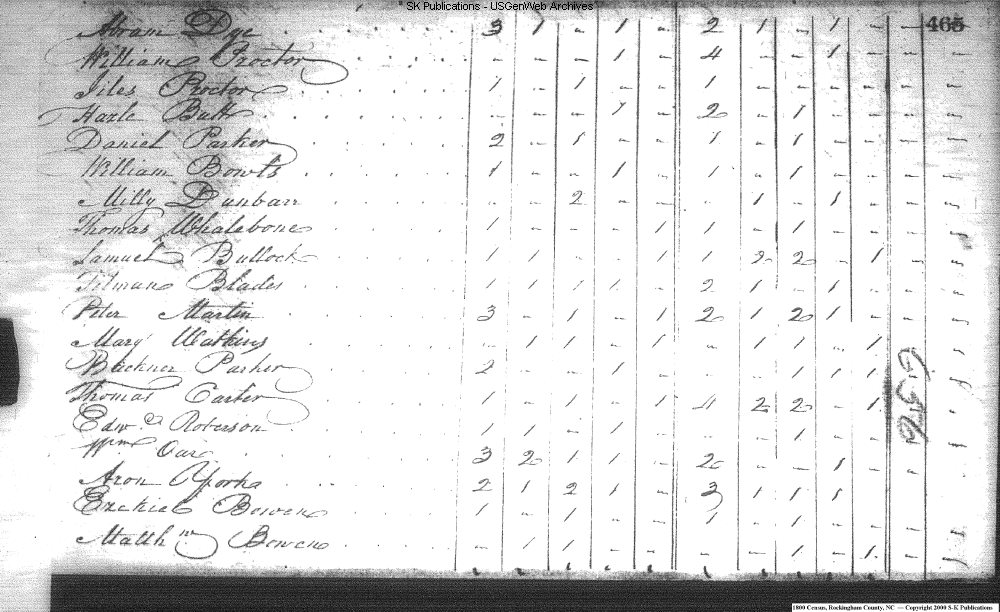 SK Publications - USGenWeb Archives
465
Abram Dye 3 1 - 1 - 2 1 - 1 - -
William Proctor - - - 1 - 4 - - 1 - -
Jiles Proctor 1 - 1 - - 1 - - - - -
Harle Butt - - - 1 - 2 - 1 - - -
Daniel Parker 2 - 1 - - 1 - 1 - - -
William Bowls 1 - - 1 - 1 - 1 - - -
Milly Dunbarr - - 2 - - - 1 - 1 - -
Thomas Whalebone 1 - - - 1 1 - 1 - - -
Samuel Bullock 1 1 - - 1 1 2 2 - 1 -
Tilman Blades 1 1 1 1 - 2 1 - 1 - -
Peter Martin 3 - 1 - 1 2 1 2 1 - -
Mary Watkins - 1 1 - 1 - 1 1 - 1 -
Parker 2 - - 1 - - - 1 1 1 -
Thomas Carter 1 - 1 - 1 4 2 2 - 1
Edwd Roberson 1 1 - 1 - - - 1 - -
Wm Oar 3 2 1 1 - 2 - - 1 - -
Aron Yorks 2 1 2 1 - 3 1 1 1 - -
Ezekiel Bowen 1 - 1 - - 1 - 1 - - -
Matthw Bowen - 1 1 - - - - 1 - 1 -
656
1800 Census, Rockingham County, NC — Copyright 2000 S-K Publications